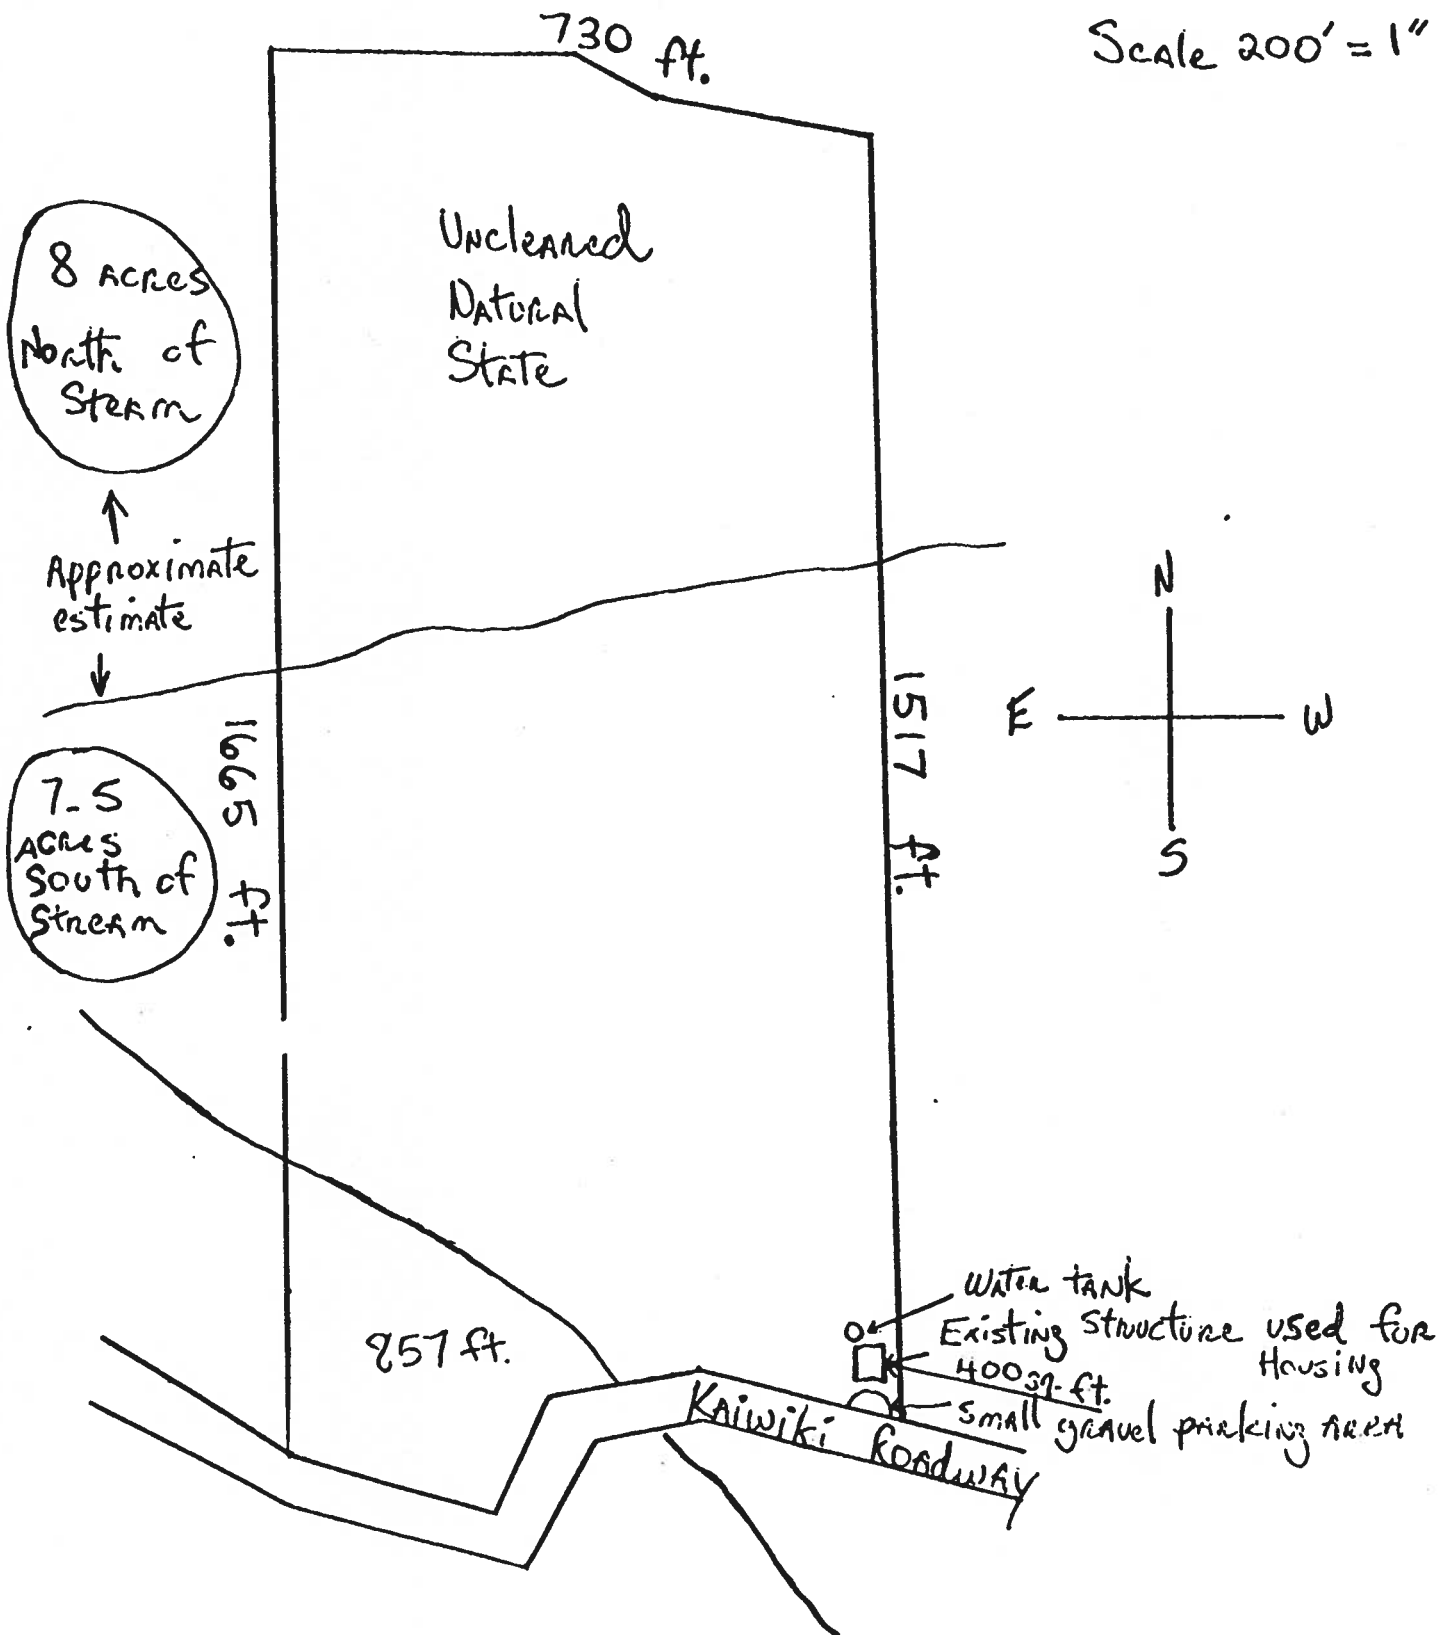 730 ft.
Scale 200' = 1"
Uncleared
Natural
State
8 Acres
North of
Steam
Approximate
estimate
7.5
Acres
South of
Stream
1665 ft.
1517 ft.
N
E
W
S
857 ft.
Water tank
Existing Structure used for
Housing
400 sq. ft.
Small gravel parking Area
Kaiwiki Roadway